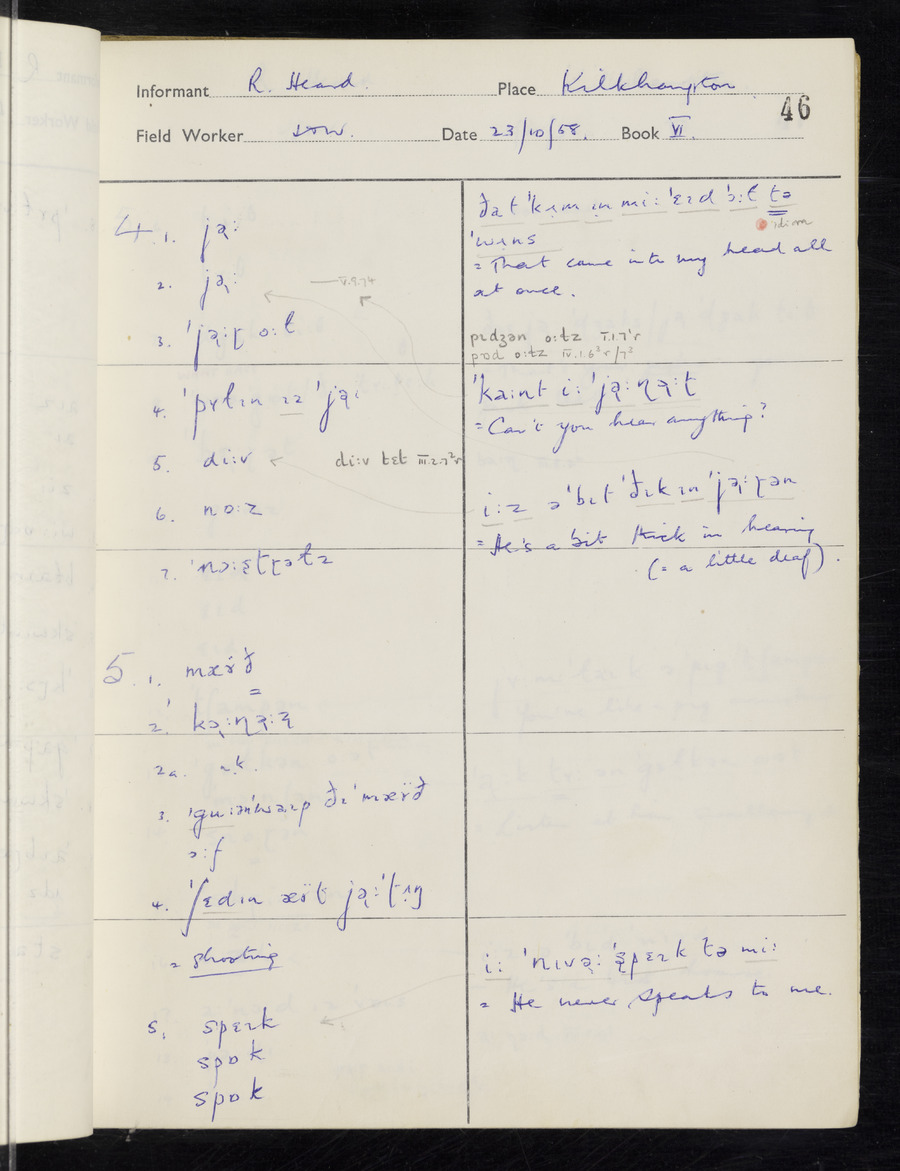 Informant R. Heard. Place Kilkhampton
46
Field Worker Date 23/10/58. Book VI.
4 1. jə̢ː
2. jə̢ː —V.9.14
3. 'jə̢ːɽ oːɫ
4. 'pʏɫɪn ɪz 'jə̢ː
5. diːv diːv tɛt III.2.7²r
6. nɔːz
7. 'nɔːʂʈɽəɫz
5. 1. mæʏ̈ð
2. kə̢ːɳə̢ːʐ
2a. n.k.
3. 'guːən 'waɪp ðɪ 'mæʏ̈ð
ɔːf
4. 'ʃɛdɪn æʏ̈t jə̢ː 'tʌŋ
= shouting
5. spɛɪk
spɒk
spɒk
ðat 'kʌm ɪn miː 'ɛɪd ɔːɫ tə
idiom
'wʌns
= That came into my head all
at once.
pɪdʒən oːɫz I.1.7'r
pɒd oːɫz IV.1.6³r/7³
'kaːnt iː 'jə̢ːɳə̢ːʈ
= Can't you hear anything?
iːz ə 'bɪt 'ðɪk ɪn 'jə̢ːɽən
= He's a bit thick in hearing
(= a little deaf).
iː 'nɪvə̢ː 'ʂpɛɪk tə miː
= He never speaks to me.